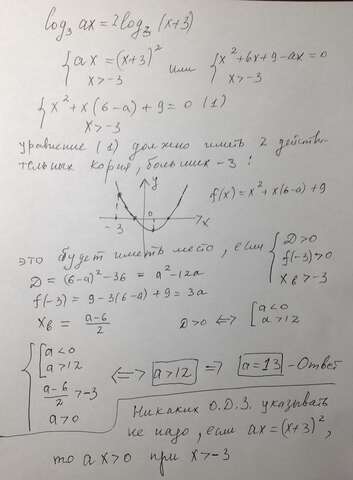 log₃ ax = 2log₃ (x+3)
{ ax = (x+3)² или { x²+6x+9-ax=0
x>-3 x>-3
{ x²+x(6-a)+9=0 (1)
x>-3
уравнение (1) должно иметь 2 действи-
тельных корня, больших -3:
y
f(x)=x²+x(6-a)+9
-3 0 7x
это будет иметь место, если { D>0
f(-3)>0
xв>-3
D = (6-a)²-36 = a²-12a
f(-3) = 9-3(6-a)+9 = 3a
xв = a-6/2 D>0 <=> [ a<0
a>12
{ [ a<0
a>12
a-6/2 >-3 <=> a>12 => a=13 - Ответ
a>0
Никаких О.Д.З. указывать
не надо, если ax=(x+3)²,
то ax>0 при x>-3